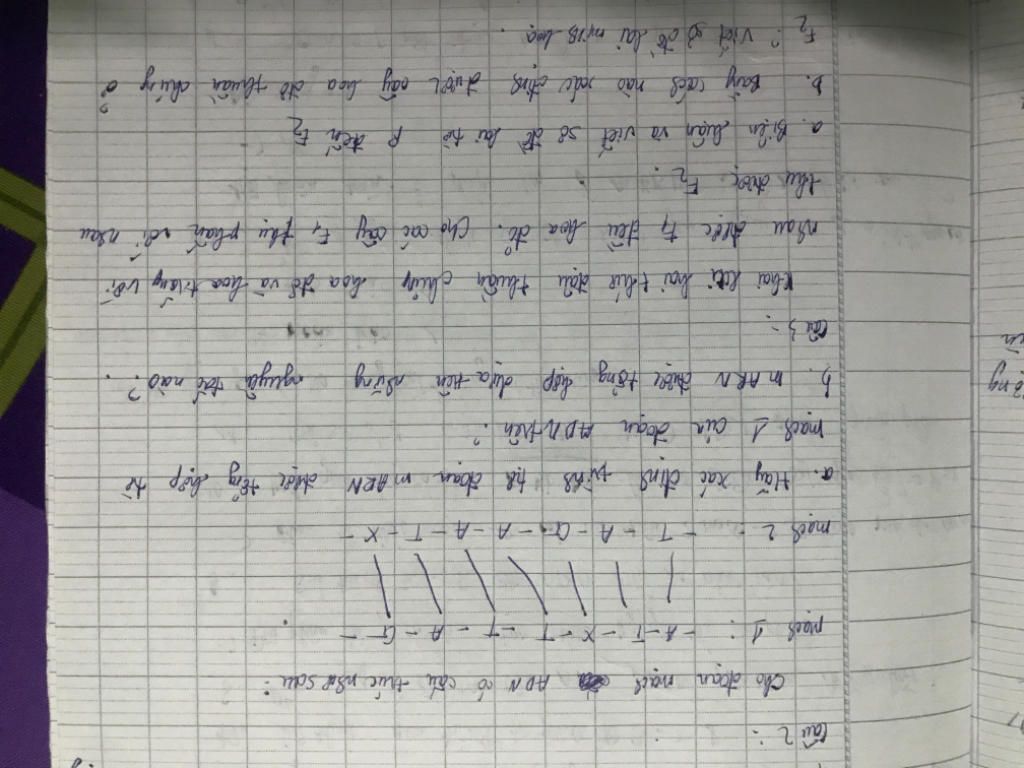 Câu 2 :
Cho đoạn mạch ADN có cấu trúc như sau :
Mạch 1 : - A - T - X - T - T - A - G -
Mạch 2 : - T - A - G - A - A - T - X -
a. Hãy xác định trình tự đoạn mARN được tổng hợp từ
mạch 1 của đoạn ADN trên ?
b. mARN được tổng hợp dựa trên những nguyên tắc nào ?
Câu 3 :
Khai lai hai thứ đậu thuần chủng hoa đỏ và hoa trắng với
nhau được F1 đều hoa đỏ. Cho các cây F1 thụ phấn với nhau
thu được F2.
a. Biện luận và viết sơ đồ lai từ P đến F2
b. Bằng cách nào xác định được cây hoa đỏ thuần chủng ở
F2 ? Viết sơ đồ lai minh hoạ.